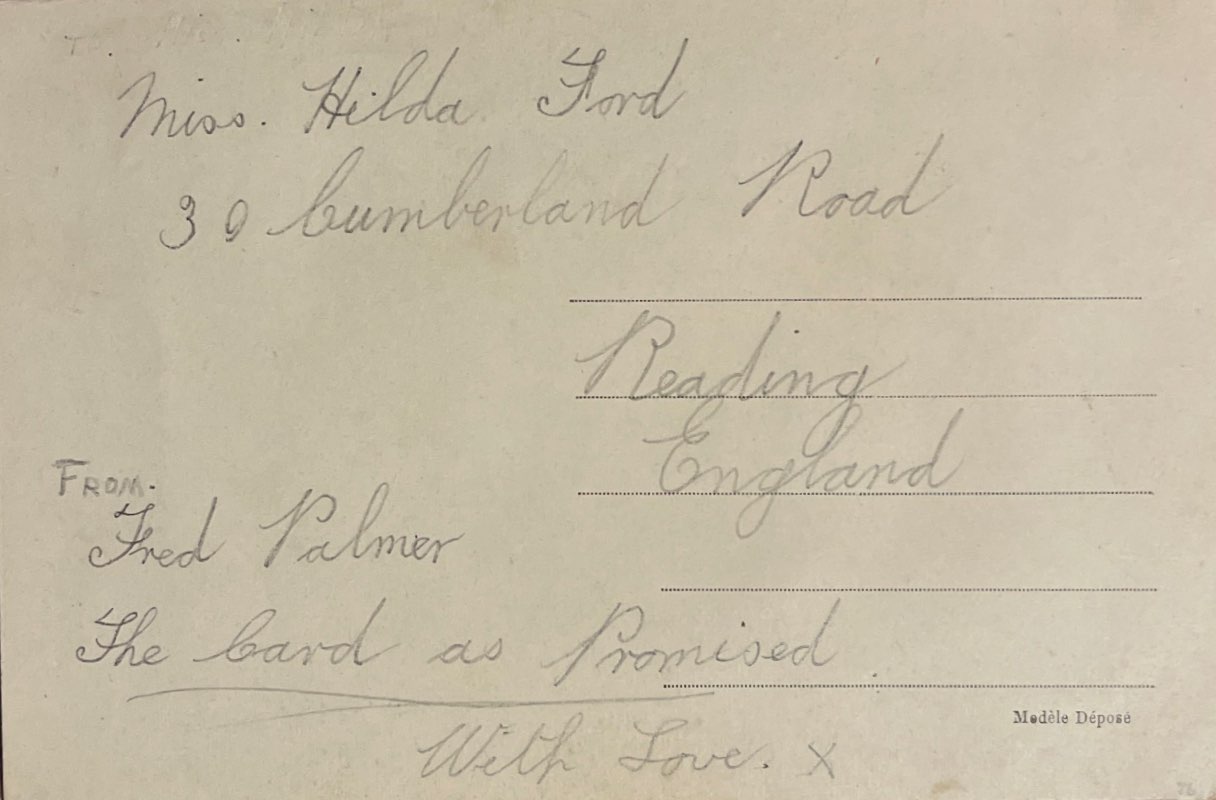 Miss. Hilda Ford
30 Cumberland Road
Reading
England
FROM.
Fred Palmer
The Card as Promised
Modèle Déposé
With Love. X